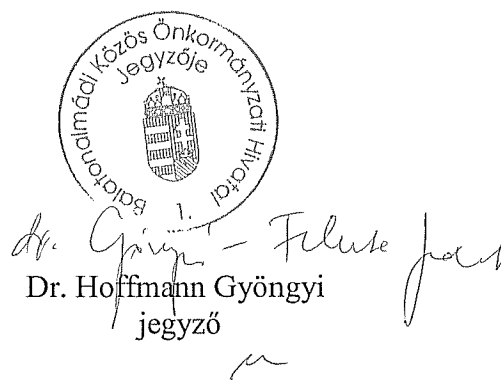 Balatonalmádi Közös Önkormányzati Hivatal
Jegyzője
1.
dr.
Dr. Hoffmann Gyöngyi
jegyző